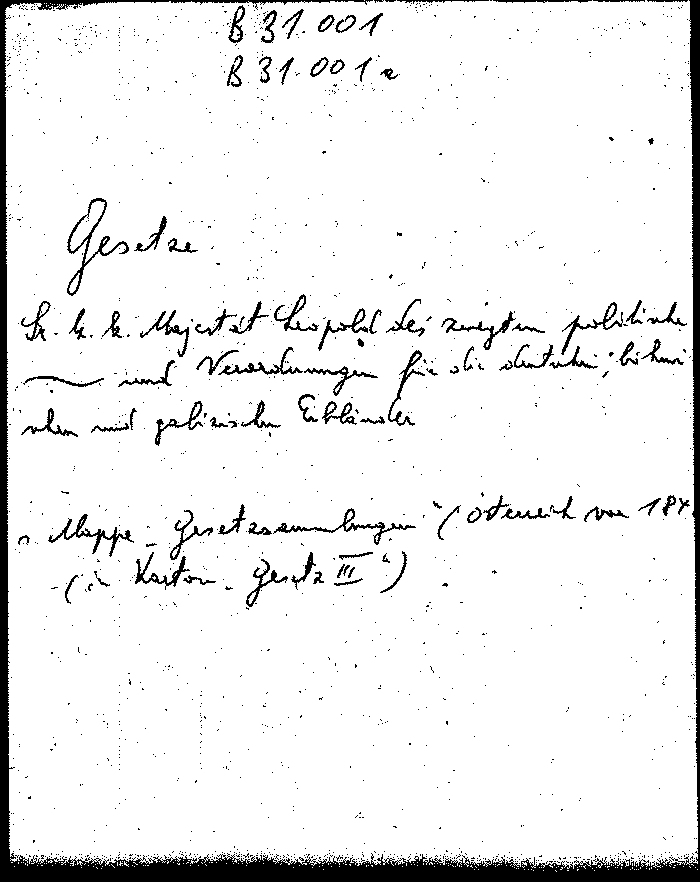 B 31.001
B 31.001 a
Gesetze
Sr. k. k. Majestät Leopold des zweyten politische
und Verordnungen für die deutschen, böhmi
schen und galizischen Erbländer
Mappe „Gesetzsammlungen“ (Österreich vor 184
(in Karton „Gesetz III“)